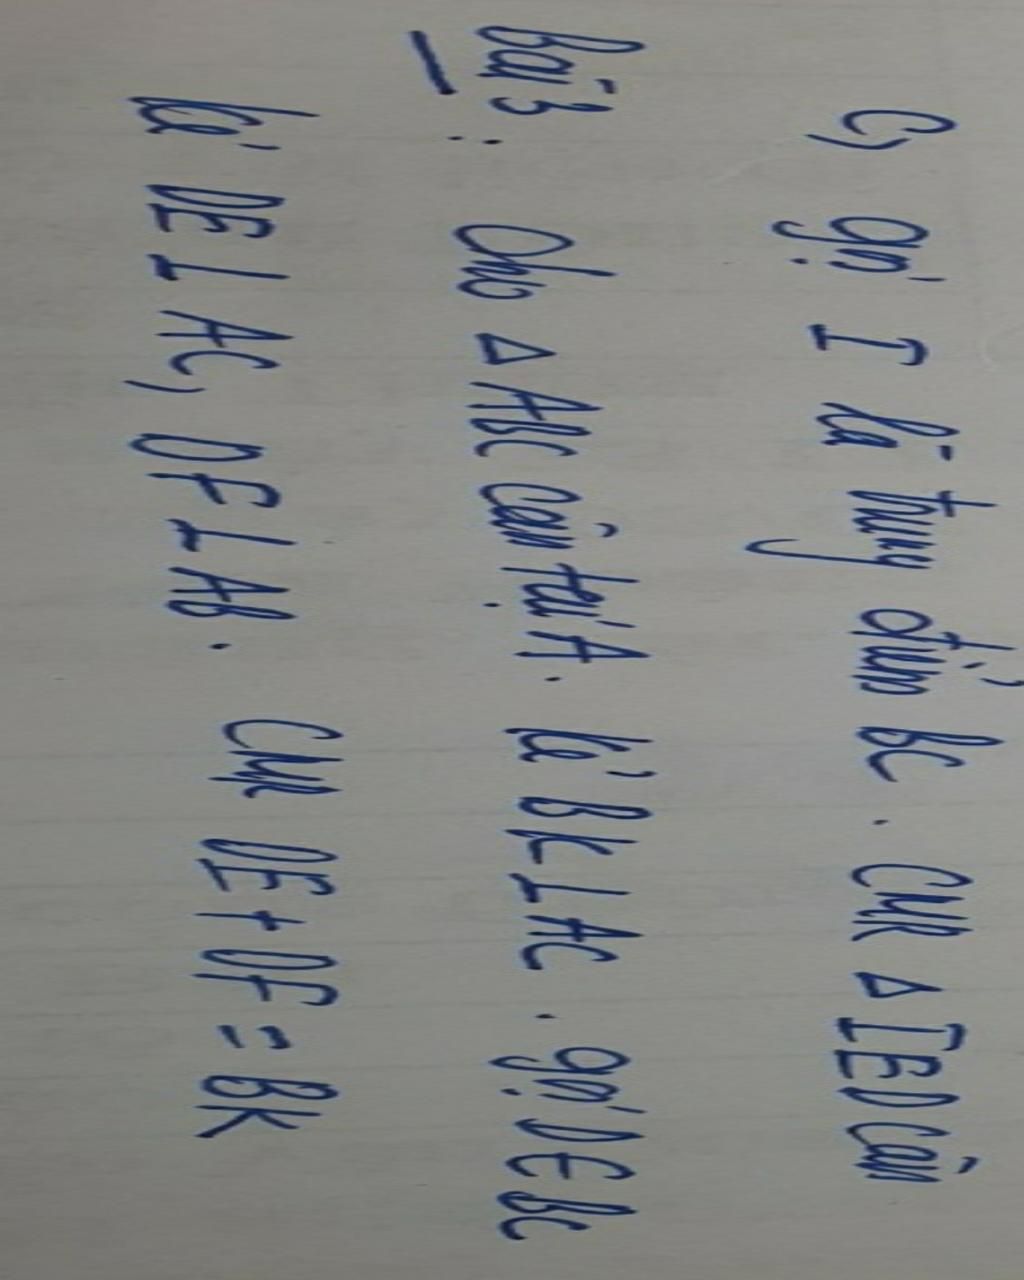 c) gọi I là trung điểm BC. CMR Δ IED cân
Bài 3: Cho Δ ABC cân tại A. kẻ BK ⊥ AC. gọi D ∈ BC
kẻ DE ⊥ AC, DF ⊥ AB. CMR DE + DF = BK